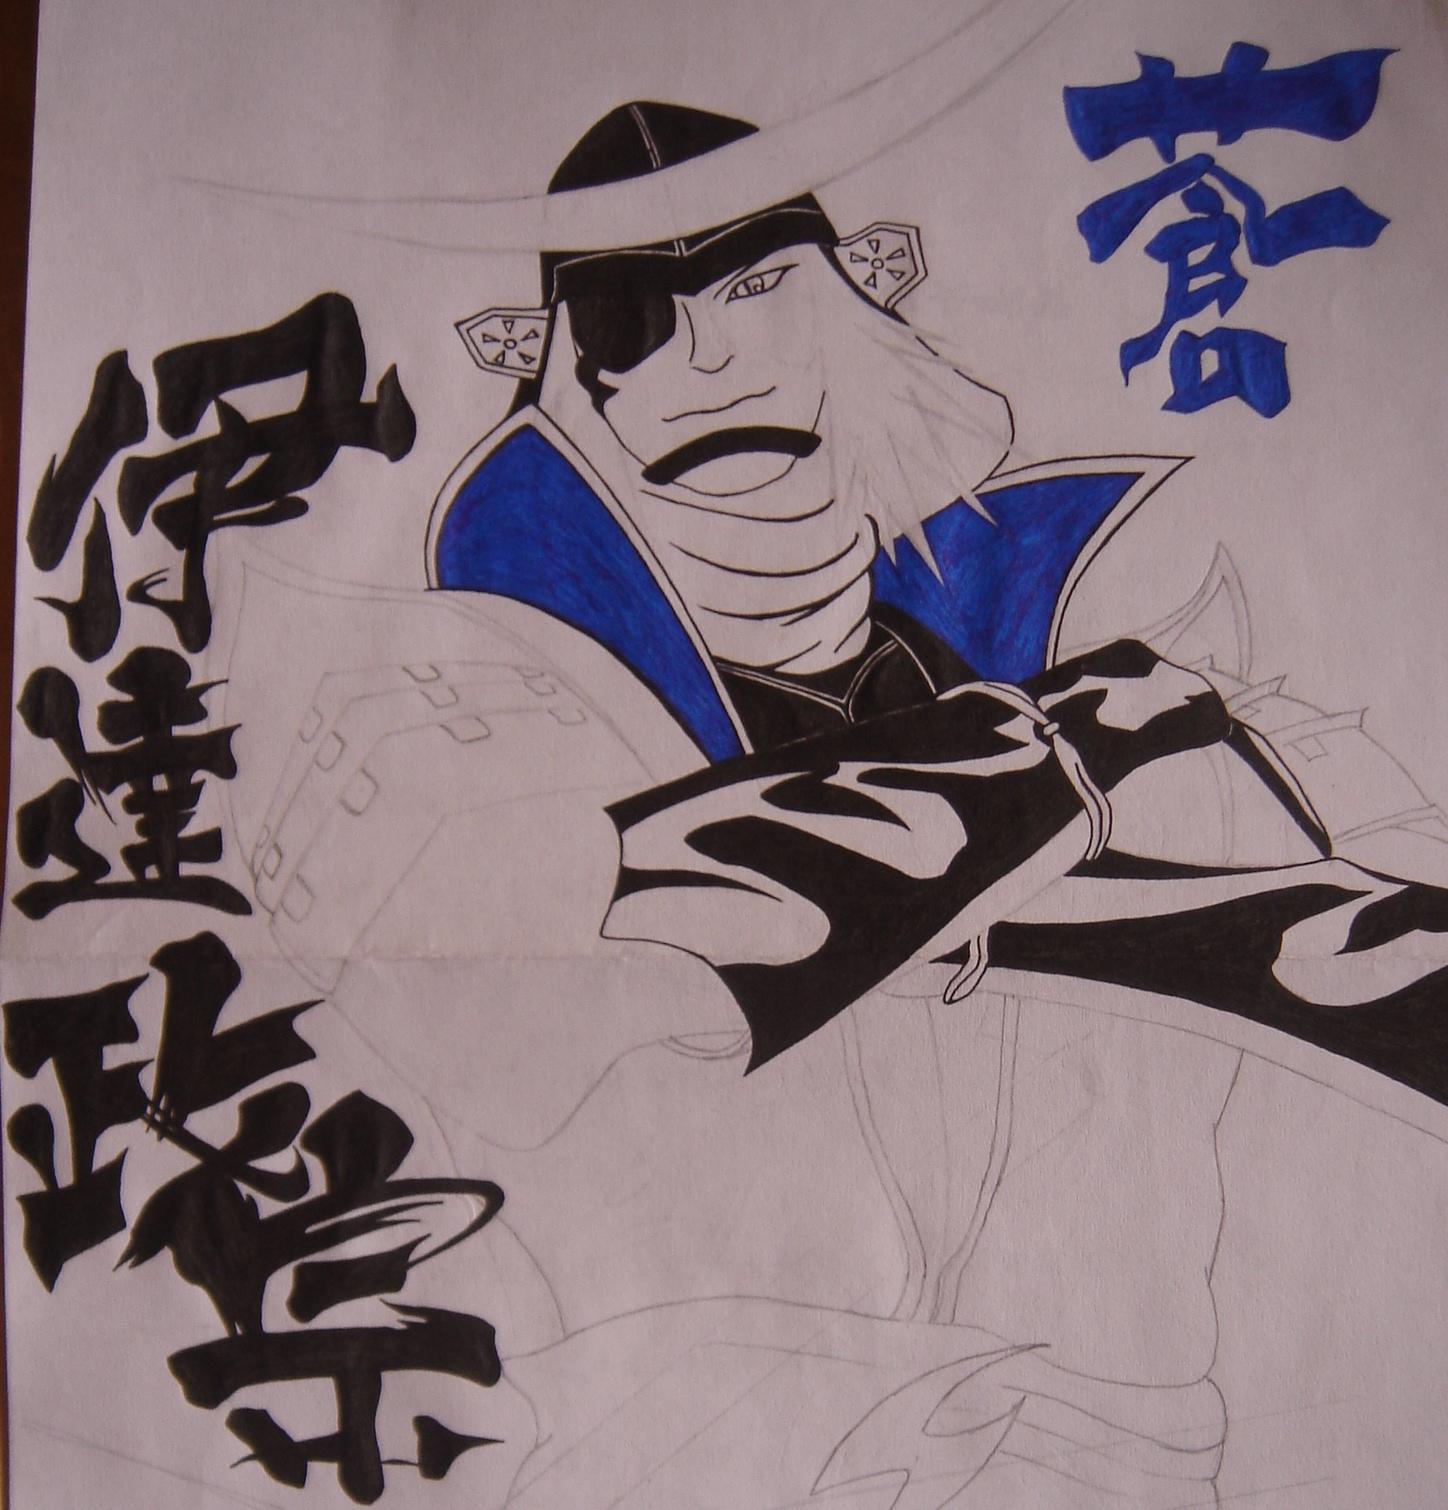 蒼
伊達政宗